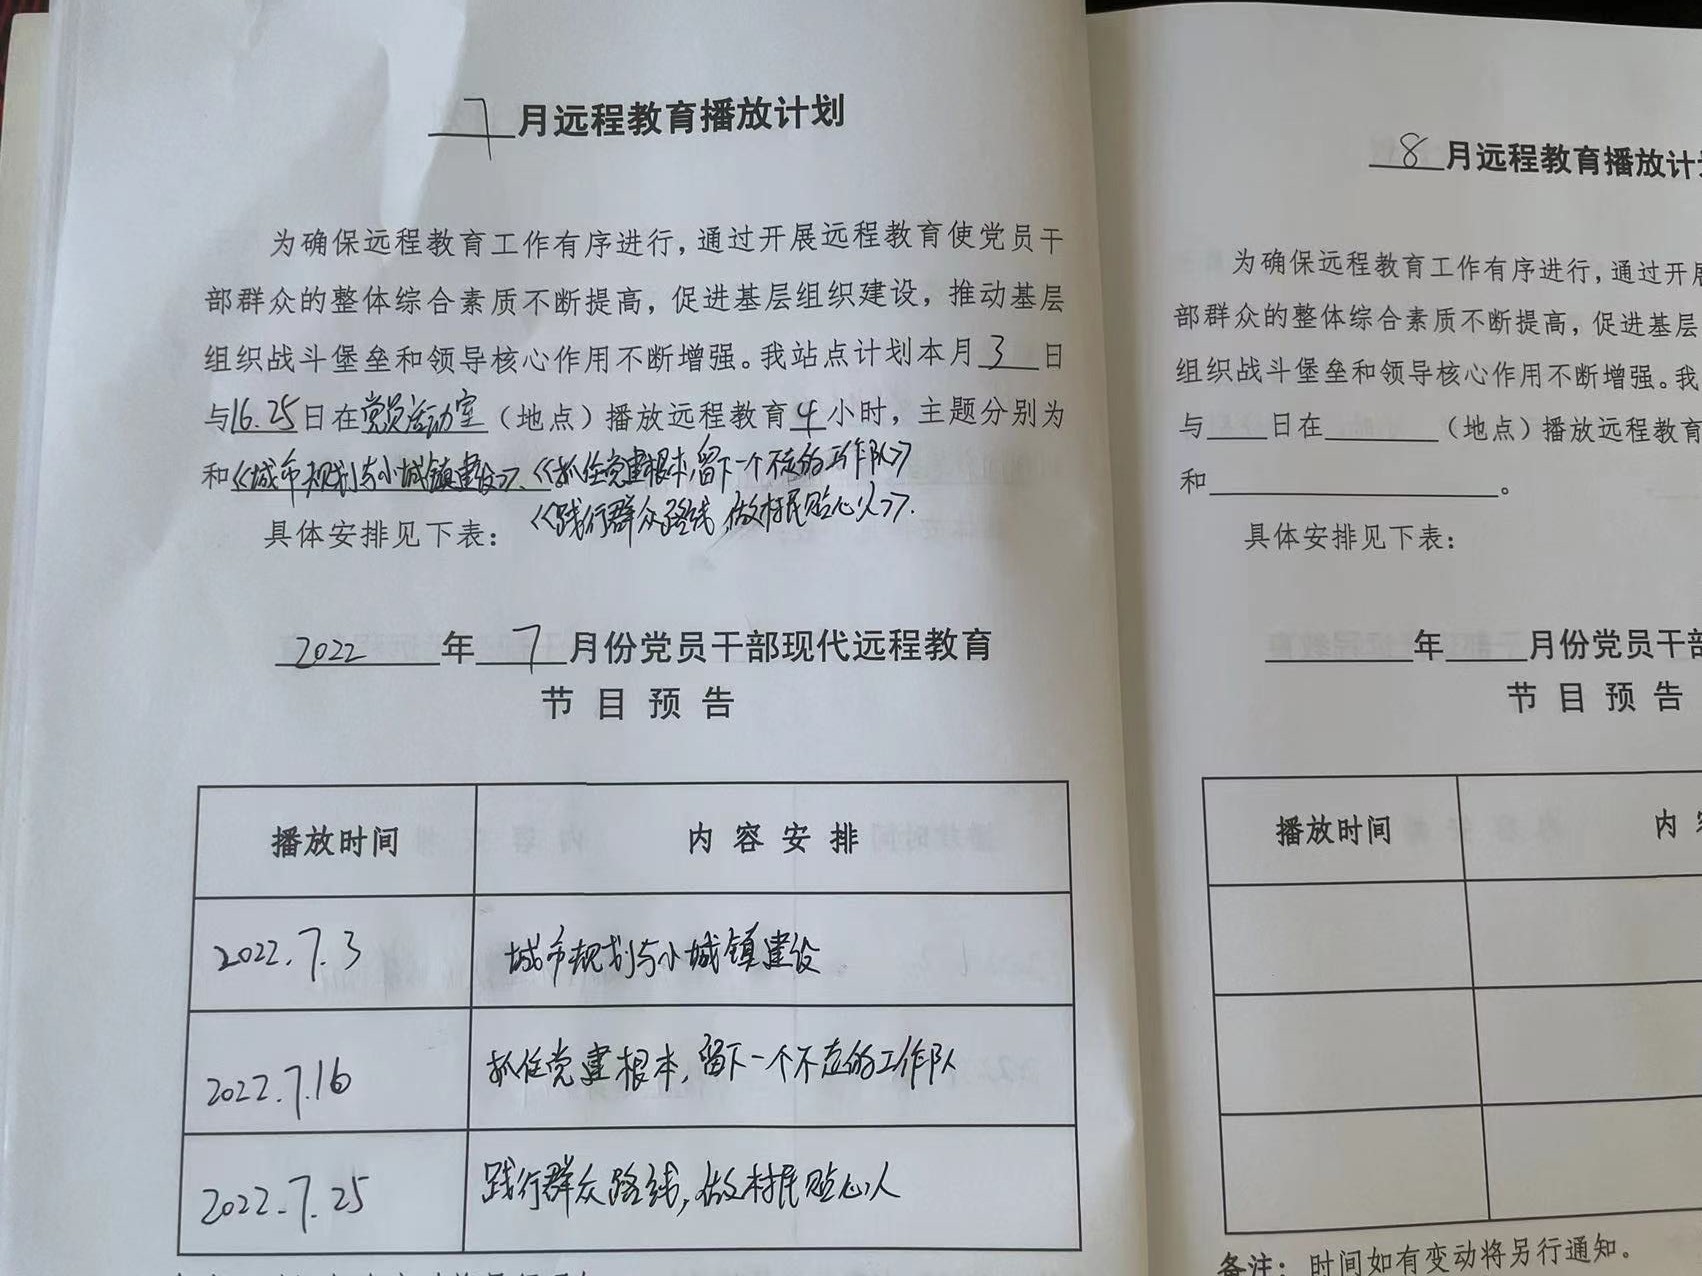 7月远程教育播放计划
为确保远程教育工作有序进行，通过开展远程教育使党员干
部群众的整体综合素质不断提高，促进基层组织建设，推动基层
组织战斗堡垒和领导核心作用不断增强。我站点计划本月3日
与16.25日在党员活动室（地点）播放远程教育4小时，主题分别为
和《城市规划与小城镇建设》、《抓住党建根本,留下一个不走的工作队》
《践行群众路线,做村民贴心人》.
具体安排见下表：
2022年7月份党员干部现代远程教育
节目预告
播放时间 内容安排
2022.7.3 城市规划与小城镇建设
2022.7.16 抓住党建根本,留下一个不走的工作队
2022.7.25 践行群众路线,做村民贴心人
8月远程教育播放计
为确保远程教育工作有序进行，通过开
部群众的整体综合素质不断提高，促进基层
组织战斗堡垒和领导核心作用不断增强。我
与____日在____（地点）播放远程教育
和____。
具体安排见下表：
____年____月份党员干
节目预告
播放时间 内
备注：时间如有变动将另行通知。